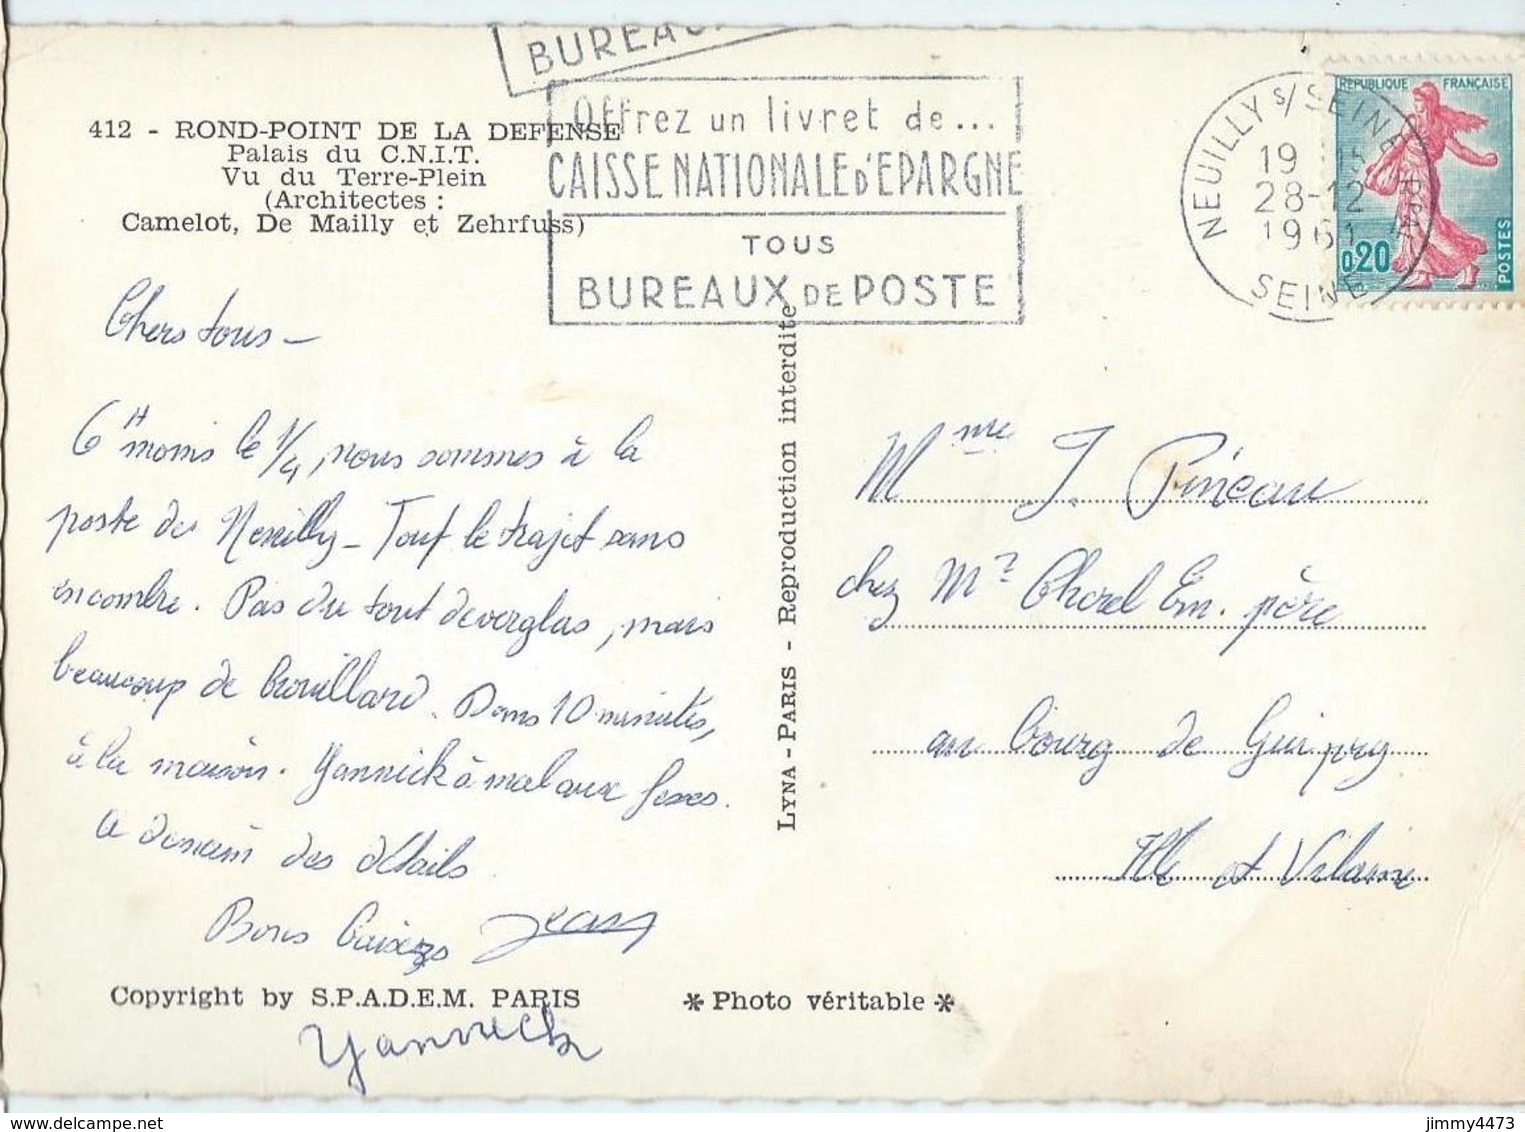 BUREAUX
Offrez un livret de...
CAISSE NATIONALE D'EPARGNE
TOUS
BUREAUX DE POSTE
NEUILLY S/ SEINE
19
28-12
1961
SEINE
REPUBLIQUE FRANÇAISE
0,20
POSTES
412 - ROND-POINT DE LA DEFENSE
Palais du C.N.I.T.
Vu du Terre-Plein
(Architectes :
Camelot, De Mailly et Zehrfuss)
Chers tous -
6H moins le 1/4, nous sommes à la
poste de Neuilly - Tout le trajet sans
encombre. Pas du tout de verglas, mais
beaucoup de brouillard. Dans 10 minutes,
à la maison. Yannick à mal aux fesses.
A demain des détails
Bons baisers Jean
Yannick
Copyright by S.P.A.D.E.M. PARIS
* Photo véritable *
LYNA - PARIS - Reproduction interdite
Mme J. Pineau
chez Mr Chorel Em. père
au bourg de Guipry
Ille et Vilaine
jimmy4473
www.delcampe.net